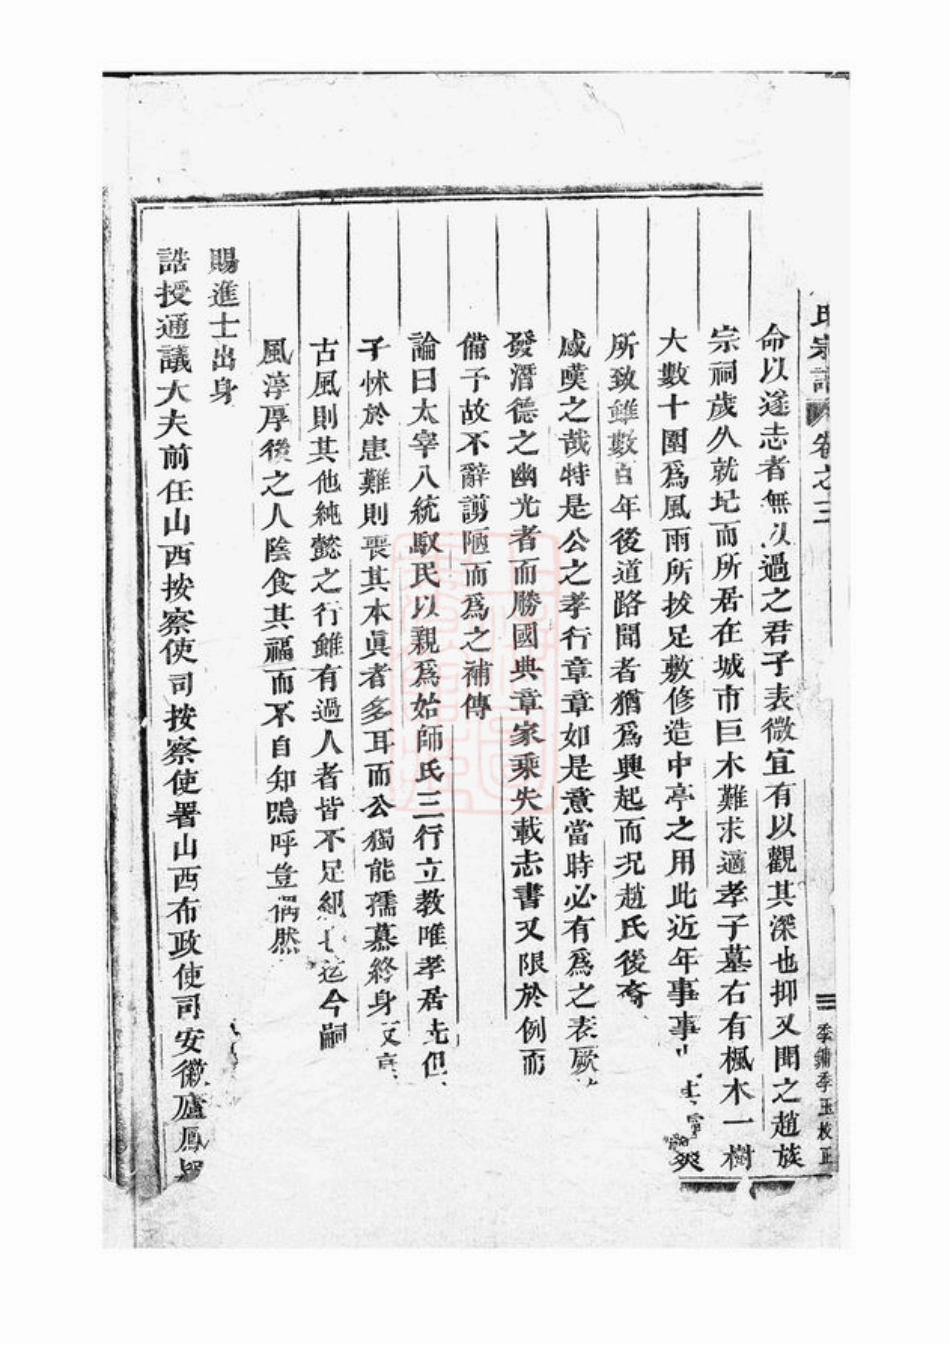 氏宗譜 卷之三 三 季鏞季玉校正
命以遂志者無以過之君子表微宜有以觀其深也抑又聞之趙族
宗祠歲久就圮而所居在城市巨木難求適孝子墓右有楓木一樹
大數十圍爲風雨所拔足敷修造中亭之用此近年事事 爽
所致雖數百年後道路聞者猶爲興起而況趙氏後裔
感嘆之哉特是公之孝行章章如是意當時必有爲之表厥
發潛德之幽光者而勝國典章家乘失載志書又限於例而
備予故不辭謭陋而爲之補傳
論曰太宰八統馭民以親爲始師氏三行立教唯孝居先但
子怵於患難則喪其本眞者多耳而公獨能孺慕終身
古風則其他純懿之行雖有過人者皆不足 迄今嗣
風淳厚後之人陰食其福而不自知嗚呼豈偶然
賜進士出身
誥授通議大夫前任山西按察使司按察使署山西布政使司安徽廬鳳